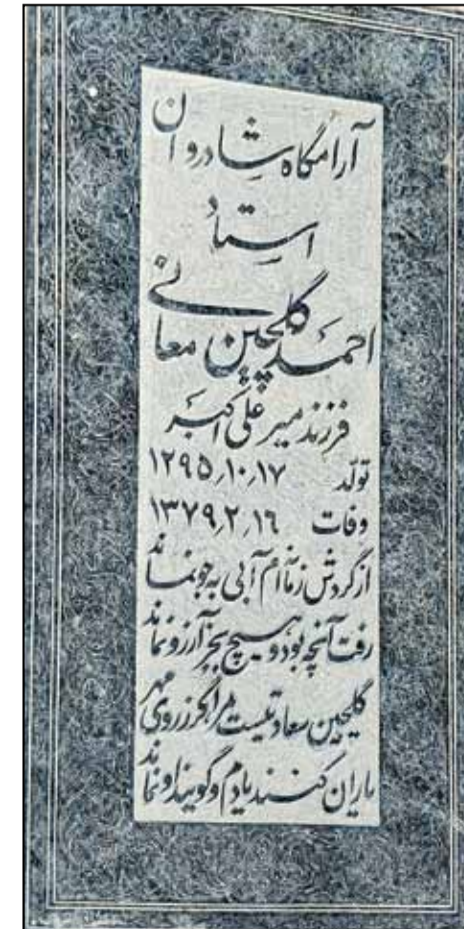 آرامگاه شادروان
استاد
احمد گلچین معانی
فرزند میر علی اکبر
تولّد ۱۲۹۵٫۱۰٫۱۷
وفات ۱۳۷۹٫۲٫۱۶
از گردش زمانه‌ام آبی به جو نماند
رفت آنچه بود و هیچ بجز آرزو نماند
گلچین سعادتیست مرا گر ز روی مهر
یاران کنند یادم و گویند او نماند